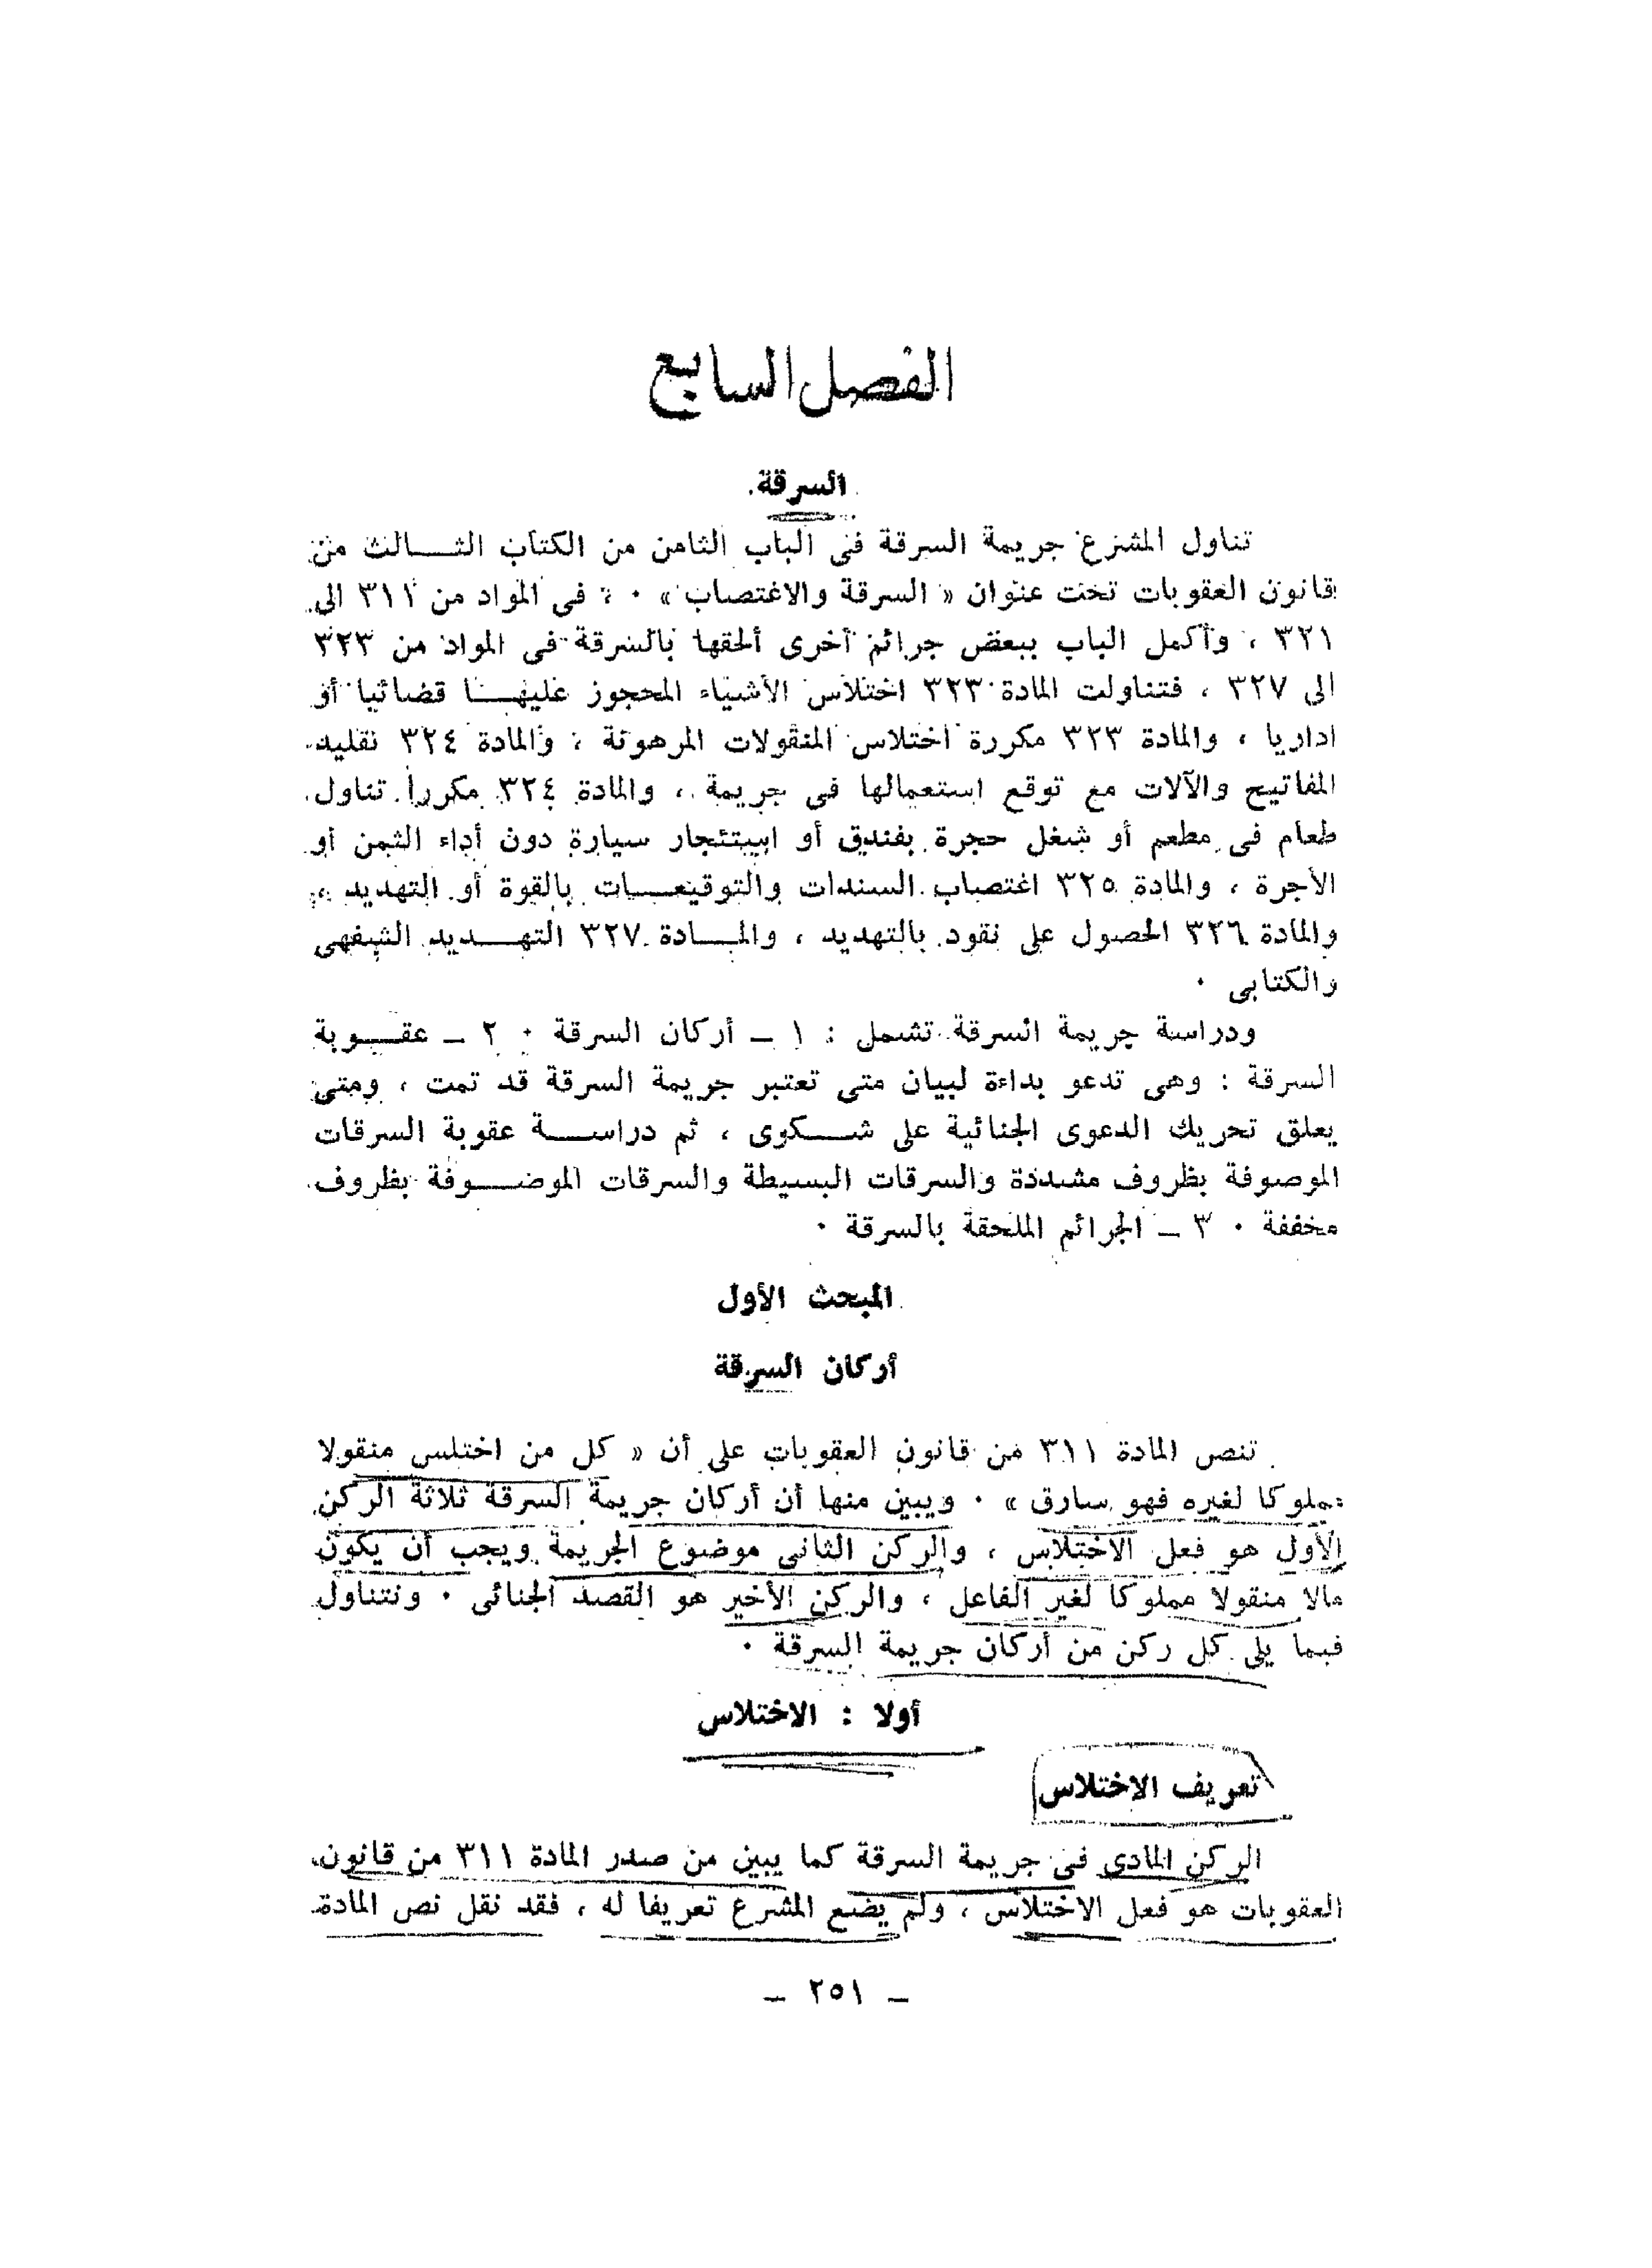 الفصل السابع
السرقة
تناول المشرع جريمة السرقة فى الباب الثامن من الكتاب الثــالث من
قانون العقوبات تحت عنوان « السرقة والاغتصاب » ٠ ، فى المواد من ٣١١ الى
٣٢١ ، وأكمل الباب ببعض جرائم أخرى ألحقها بالسرقة فى المواد من ٣٢٣
الى ٣٢٧ ، فتناولت المادة ٣٢٣ اختلاس الأشياء المحجوز عليهــا قضائيا أو
اداريا ، والمادة ٣٢٣ مكررة اختلاس المنقولات المرهونة ، والمادة ٣٢٤ تقليد
المفاتيح والآلات مع توقع استعمالها فى جريمة ، والمادة ٣٢٤ مكررا تناول
طعام فى مطعم أو شغل حجرة بفندق أو استئجار سيارة دون أداء الثمن أو
الأجرة ، والمادة ٣٢٥ اغتصاب السندات والتوقيعــات بالقوة أو التهديد ،
والمادة ٣٢٦ الحصول على نقود بالتهديد ، والمــادة ٣٢٧ التهــديد الشفهى
والكتابى ٠
ودراسة جريمة السرقة تشمل : ١ ـ أركان السرقة ٠ ٢ ـ عقــوبة
السرقة : وهى تدعو بداءة لبيان متى تعتبر جريمة السرقة قد تمت ، ومتى
يعلق تحريك الدعوى الجنائية على شــكوى ، ثم دراســة عقوبة السرقات
الموصوفة بظروف مشددة والسرقات البسيطة والسرقات الموصــوفة بظروف
مخففة ٠ ٣ ـ الجرائم الملحقة بالسرقة ٠
المبحث الأول
أركان السرقة
تنص المادة ٣١١ من قانون العقوبات على أن « كل من اختلس منقولا
مملوكا لغيره فهو سارق » ٠ ويبين منها أن أركان جريمة السرقة ثلاثة الركن
الأول هو فعل الاختلاس ، والركن الثانى موضوع الجريمة ويجب أن يكون
مالا منقولا مملوكا لغير الفاعل ، والركن الأخير هو القصد الجنائى ٠ ونتناول
فيما يلى كل ركن من أركان جريمة السرقة ٠
أولا : الاختلاس
تعريف الاختلاس
الركن المادى فى جريمة السرقة كما يبين من صدر المادة ٣١١ من قانون
العقوبات هو فعل الاختلاس ، ولم يضع المشرع تعريفا له ، فقد نقل نص المادة
ـ ٢٥١ ـ